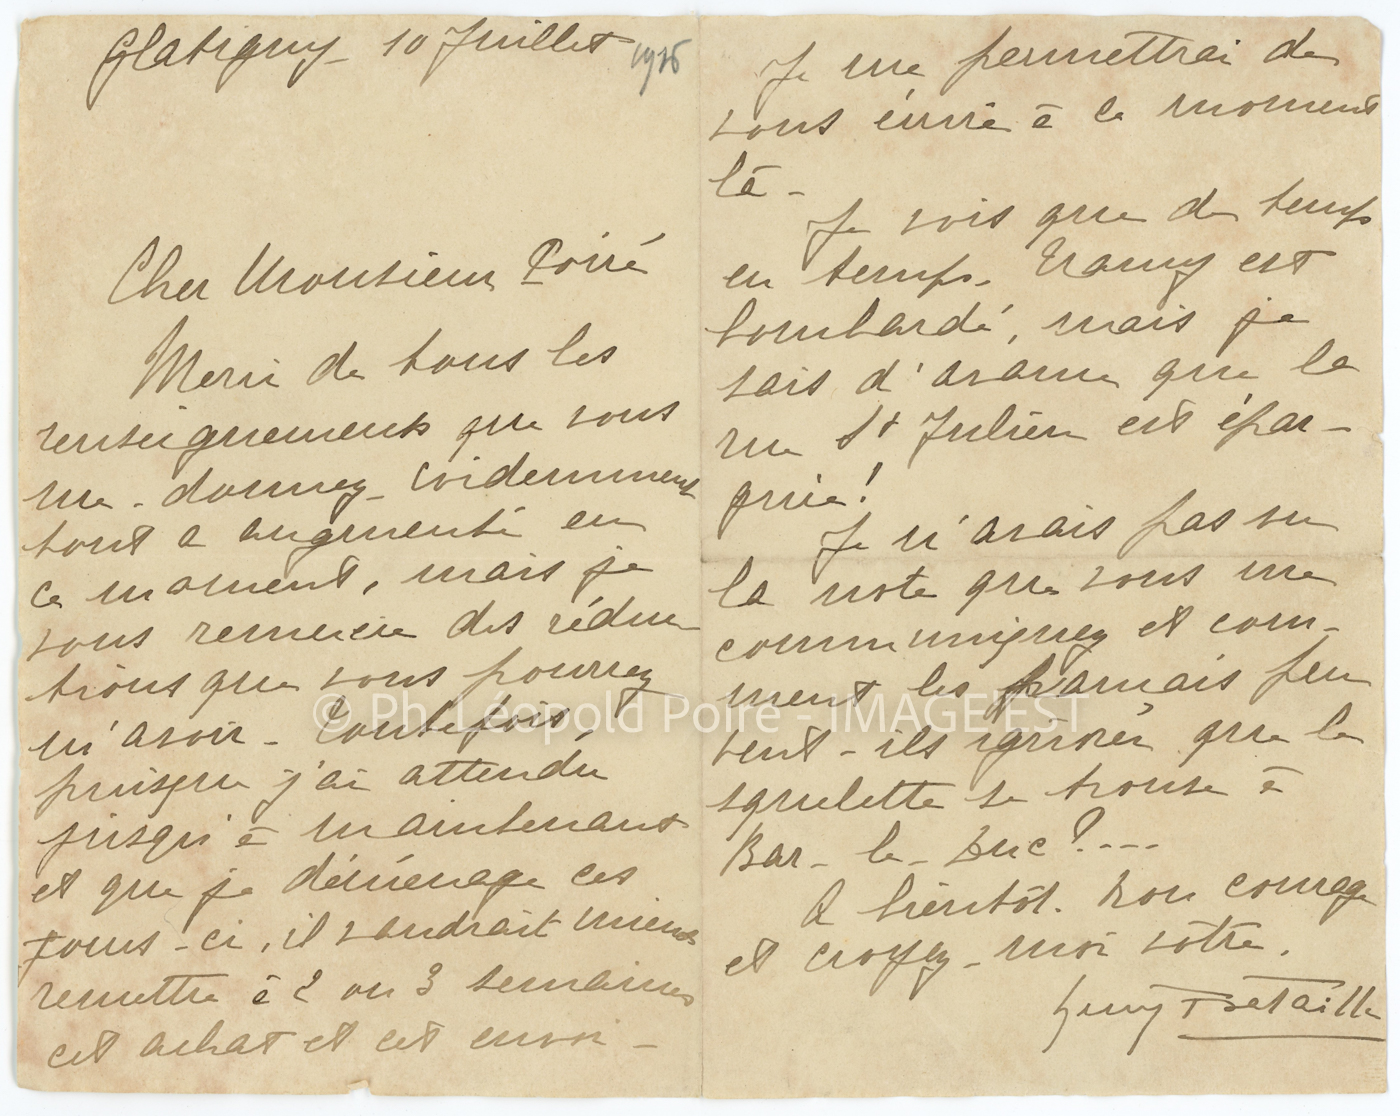 Glatigny 10 Juillet 1916
Cher Monsieur Poiré
Merci de tous les
renseignements que vous
me donnez. Evidemment
tout a augmenté en
ce moment, mais je
vous remercie des réduc
tions que vous pourrez
m'avoir - Toutefois,
puisque j'ai attendu
jusqu'à maintenant
et que je déménage ces
jours-ci, il vaudrait mieux
remettre à 2 ou 3 semaines
cet achat et cet envoi -
Je me permettrai de
vous écrire à ce moment
là -
Je vois que de temps
en temps - Nancy est
bombardé, mais je
sais d'avance que la
rue St Julien est épar-
gnée!
Je n'avais pas vu
la note que vous me
communiquez et com-
ment les français peu
vent-ils ignorer que le
squelette se trouve à
Bar-le-Duc?....
A bientôt. Bon courage
et croyez-moi vôtre.
Bataille
© Ph. Léopold Poiré - IMAGE'EST